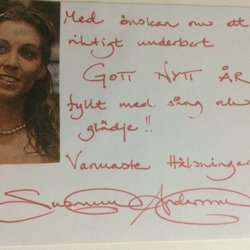 Med önskan om ett
riktigt underbart
GOTT NYTT ÅR
fyllt med sång och
glädje!!
Varmaste Hälsningar